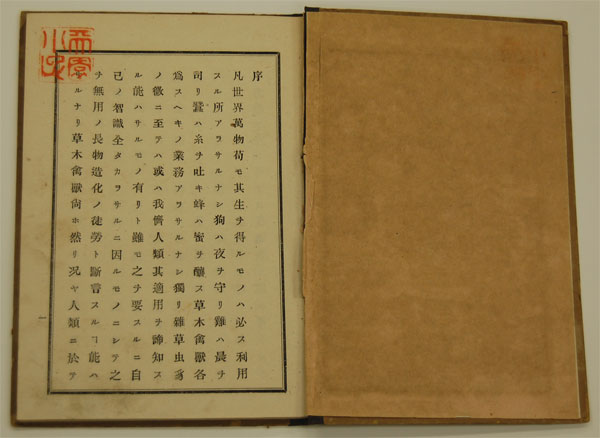 序
凡世界萬物苟モ其生ヲ得ルモノハ必ス利用
スル所アラサルナシ狗ハ夜ヲ守リ雞ハ晨ヲ
司リ蠶ハ糸ヲ吐キ蜂ハ密ヲ釀ス草木禽獸各
爲スヘキノ業務アラサルナシ獨リ雜草虫豸
ノ微ニ至テハ或ハ我儕人類其適用ヲ諦知ス
ル能ハサルモノ有リト雖モ之ヲ要スルニ自
己ノ智識全タカラサルニ因ルモノニシテ之
ヲ無用ノ長物造化ノ徒勞ト斷言スルヿ能ハ
サルナリ草木禽獸尙ホ然リ況ヤ人類ニ於テ
一